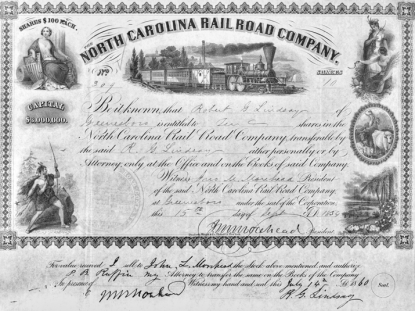 SHARES $100 EACH.
NORTH CAROLINA RAIL ROAD COMPANY,
No
SHARES
CAPITAL
$3,000,000.
Be it known, that Robert G Lindsay of
Greensboro is entitled to Ten shares in the
North Carolina Rail Road Company, transferable by
the said R G Lindsay either personally or by
Attorney, only at the Office and on the Books of said Company.
Witness Jno M Morehead President
of the said North Carolina Rail Road Company,
at Greensboro under the seal of the Corporation
this 15th day of Sept AD 185
J M Morehead
For value received I sell to John L Morehead the stock above mentioned, and authorize
P B Ruffin my Attorney to transfer the same on the Books of the Company
In presence of Witness my hand and seal this July 14th AD 1860
R G Lindsay Seal